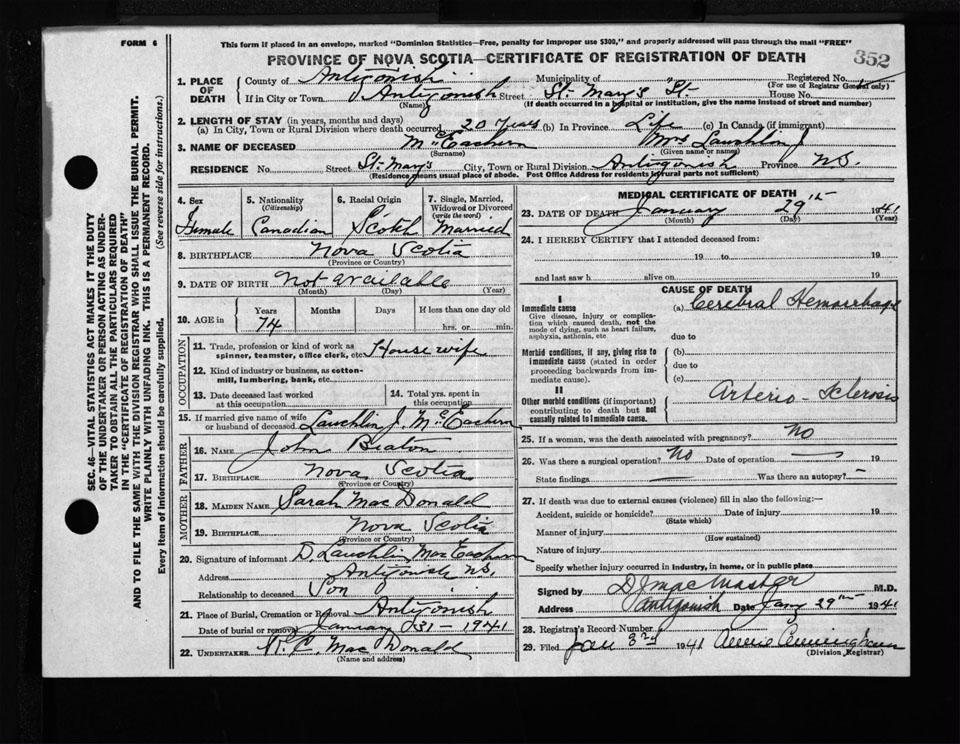 FORM 6
This form if placed in an envelope, marked "Dominion Statistics—Free, penalty for improper use $300," and properly addressed will pass through the mail "FREE"
PROVINCE OF NOVA SCOTIA—CERTIFICATE OF REGISTRATION OF DEATH
352
1. PLACE OF DEATH
County of Antigonish Municipality of Registered No.
(For use of Registrar General only)
If in City or Town Antigonish Street St. Mary's St. House No.
(Name) (If death occurred in a hospital or institution, give the name instead of street and number)
2. LENGTH OF STAY (in years, months and days)
(a) In City, Town or Rural Division where death occurred 20 years (b) In Province Life (c) In Canada (if immigrant)
3. NAME OF DECEASED McEachern Mrs Lauchlin J.
(Surname) (Given name or names)
RESIDENCE No. Street St. Mary's City, Town or Rural Division Antigonish Province N.S.
(Residence means usual place of abode. Post Office Address for residents in rural parts not sufficient)
4. Sex
Female
5. Nationality
(Citizenship)
Canadian
6. Racial Origin
Scotch
7. Single, Married, Widowed or Divorced
(write the word)
Married
8. BIRTHPLACE Nova Scotia
(Province or Country)
9. DATE OF BIRTH Not available
(Month) (Day) (Year)
10. AGE in
Years Months Days If less than one day old
74 hrs. or min.
OCCUPATION
11. Trade, profession or kind of work as
spinner, teamster, office clerk, etc. House wife
12. Kind of industry or business, as cotton-
mill, lumbering, bank, etc.
13. Date deceased last worked
at this occupation
14. Total yrs. spent in
this occupation
15. If married give name of wife
or husband of deceased Lauchlin J. McEachern
FATHER
16. NAME John Beaton
17. BIRTHPLACE Nova Scotia
(Province or Country)
MOTHER
18. MAIDEN NAME Sarah Mac Donald
19. BIRTHPLACE Nova Scotia
(Province or Country)
20. Signature of informant D. Lauchlin MacEachern
Address Antigonish N.S.
Relationship to deceased Son
21. Place of Burial, Cremation or Removal Antigonish
Date of burial or removal January 31 - 1941
22. UNDERTAKER Mac Donald
(Name and address)
MEDICAL CERTIFICATE OF DEATH
23. DATE OF DEATH January 29th 1941
(Month) (Day) (Year)
24. I HEREBY CERTIFY that I attended deceased from:
19 to 19
and last saw h alive on 19
CAUSE OF DEATH
I
Immediate cause
Give disease, injury or complica-
tion which caused death, not the
mode of dying, such as heart failure,
asphyxia, asthenia, etc
(a) Cerebral Hemorrhage
due to
Morbid conditions, if any, giving rise to
immediate cause (stated in order
proceeding backwards from im-
mediate cause).
(b)
due to
(c)
II
Other morbid conditions (if important)
contributing to death but not
causally related to immediate cause.
Arterio-Sclerosis
25. If a woman, was the death associated with pregnancy? No
26. Was there a surgical operation? No Date of operation 19
State findings Was there an autopsy?
27. If death was due to external causes (violence) fill in also the following:—
Accident, suicide or homicide? Date of injury 19
(State which)
Manner of injury
(How sustained)
Nature of injury
Specify whether injury occurred in industry, in home, or in public place
Signed by D J MacMaster M.D.
Address Antigonish Date Jany 29th 1941
28. Registrar's Record Number
29. Filed Jan 3rd 1941 Cunningham
(Division Registrar)
SEC. 46—VITAL STATISTICS ACT MAKES IT THE DUTY
OF THE UNDERTAKER OR PERSON ACTING AS UNDER-
TAKER TO OBTAIN ALL THE PARTICULARS REQUIRED
IN THE "CERTIFICATE OF REGISTRATION OF DEATH"
AND TO FILE THE SAME WITH THE DIVISION REGISTRAR WHO SHALL ISSUE THE BURIAL PERMIT.
WRITE PLAINLY WITH UNFADING INK. THIS IS A PERMANENT RECORD.
Every item of information should be carefully supplied. (See reverse side for instructions.)